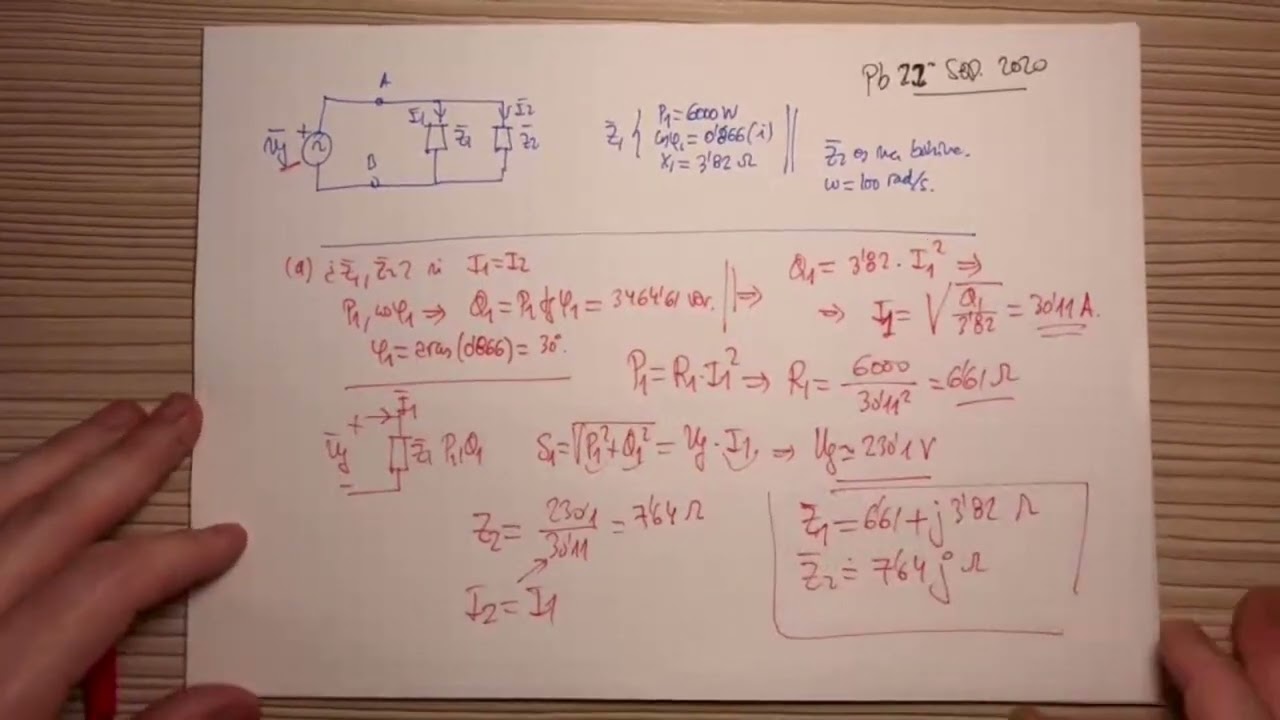 Pb 22 Sep. 2020
A
B
Ūg + ~
I̅1 Z̅1
I̅2 Z̅2
Z̅1 { P1 = 6000 W
cosφ1 = 0'866 (i)
X1 = 3'82 Ω
Z̅2 es una bobina.
ω = 100 rad/s.
(a) ¿Z̅1, Z̅2? si I1 = I2
P1, cosφ1 ⇒ Q1 = P1 tgφ1 = 3464'61 var.
φ1 = arcos(0'866) = 30°.
Q1 = 3'82 · I1² ⇒
⇒ I1 = √(Q1/3'82) = 30'11 A.
P1 = R1 · I1² ⇒ R1 = 6000/30'11² = 6'61 Ω
I̅1
Ūg + − Z̅1 P1, Q1
S1 = √(P1² + Q1²) = Ug · I1, ⇒ Ug ≃ 230'1 V
Z2 = 230'1/30'11 = 7'64 Ω
I2 = I1
Z̅1 = 6'61 + j 3'82 Ω
Z̅2 = 7'64 j Ω